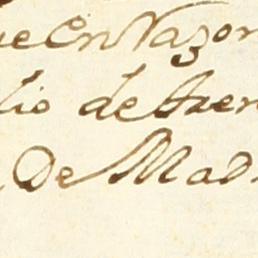 ue en razon
lio de tren
De Mad